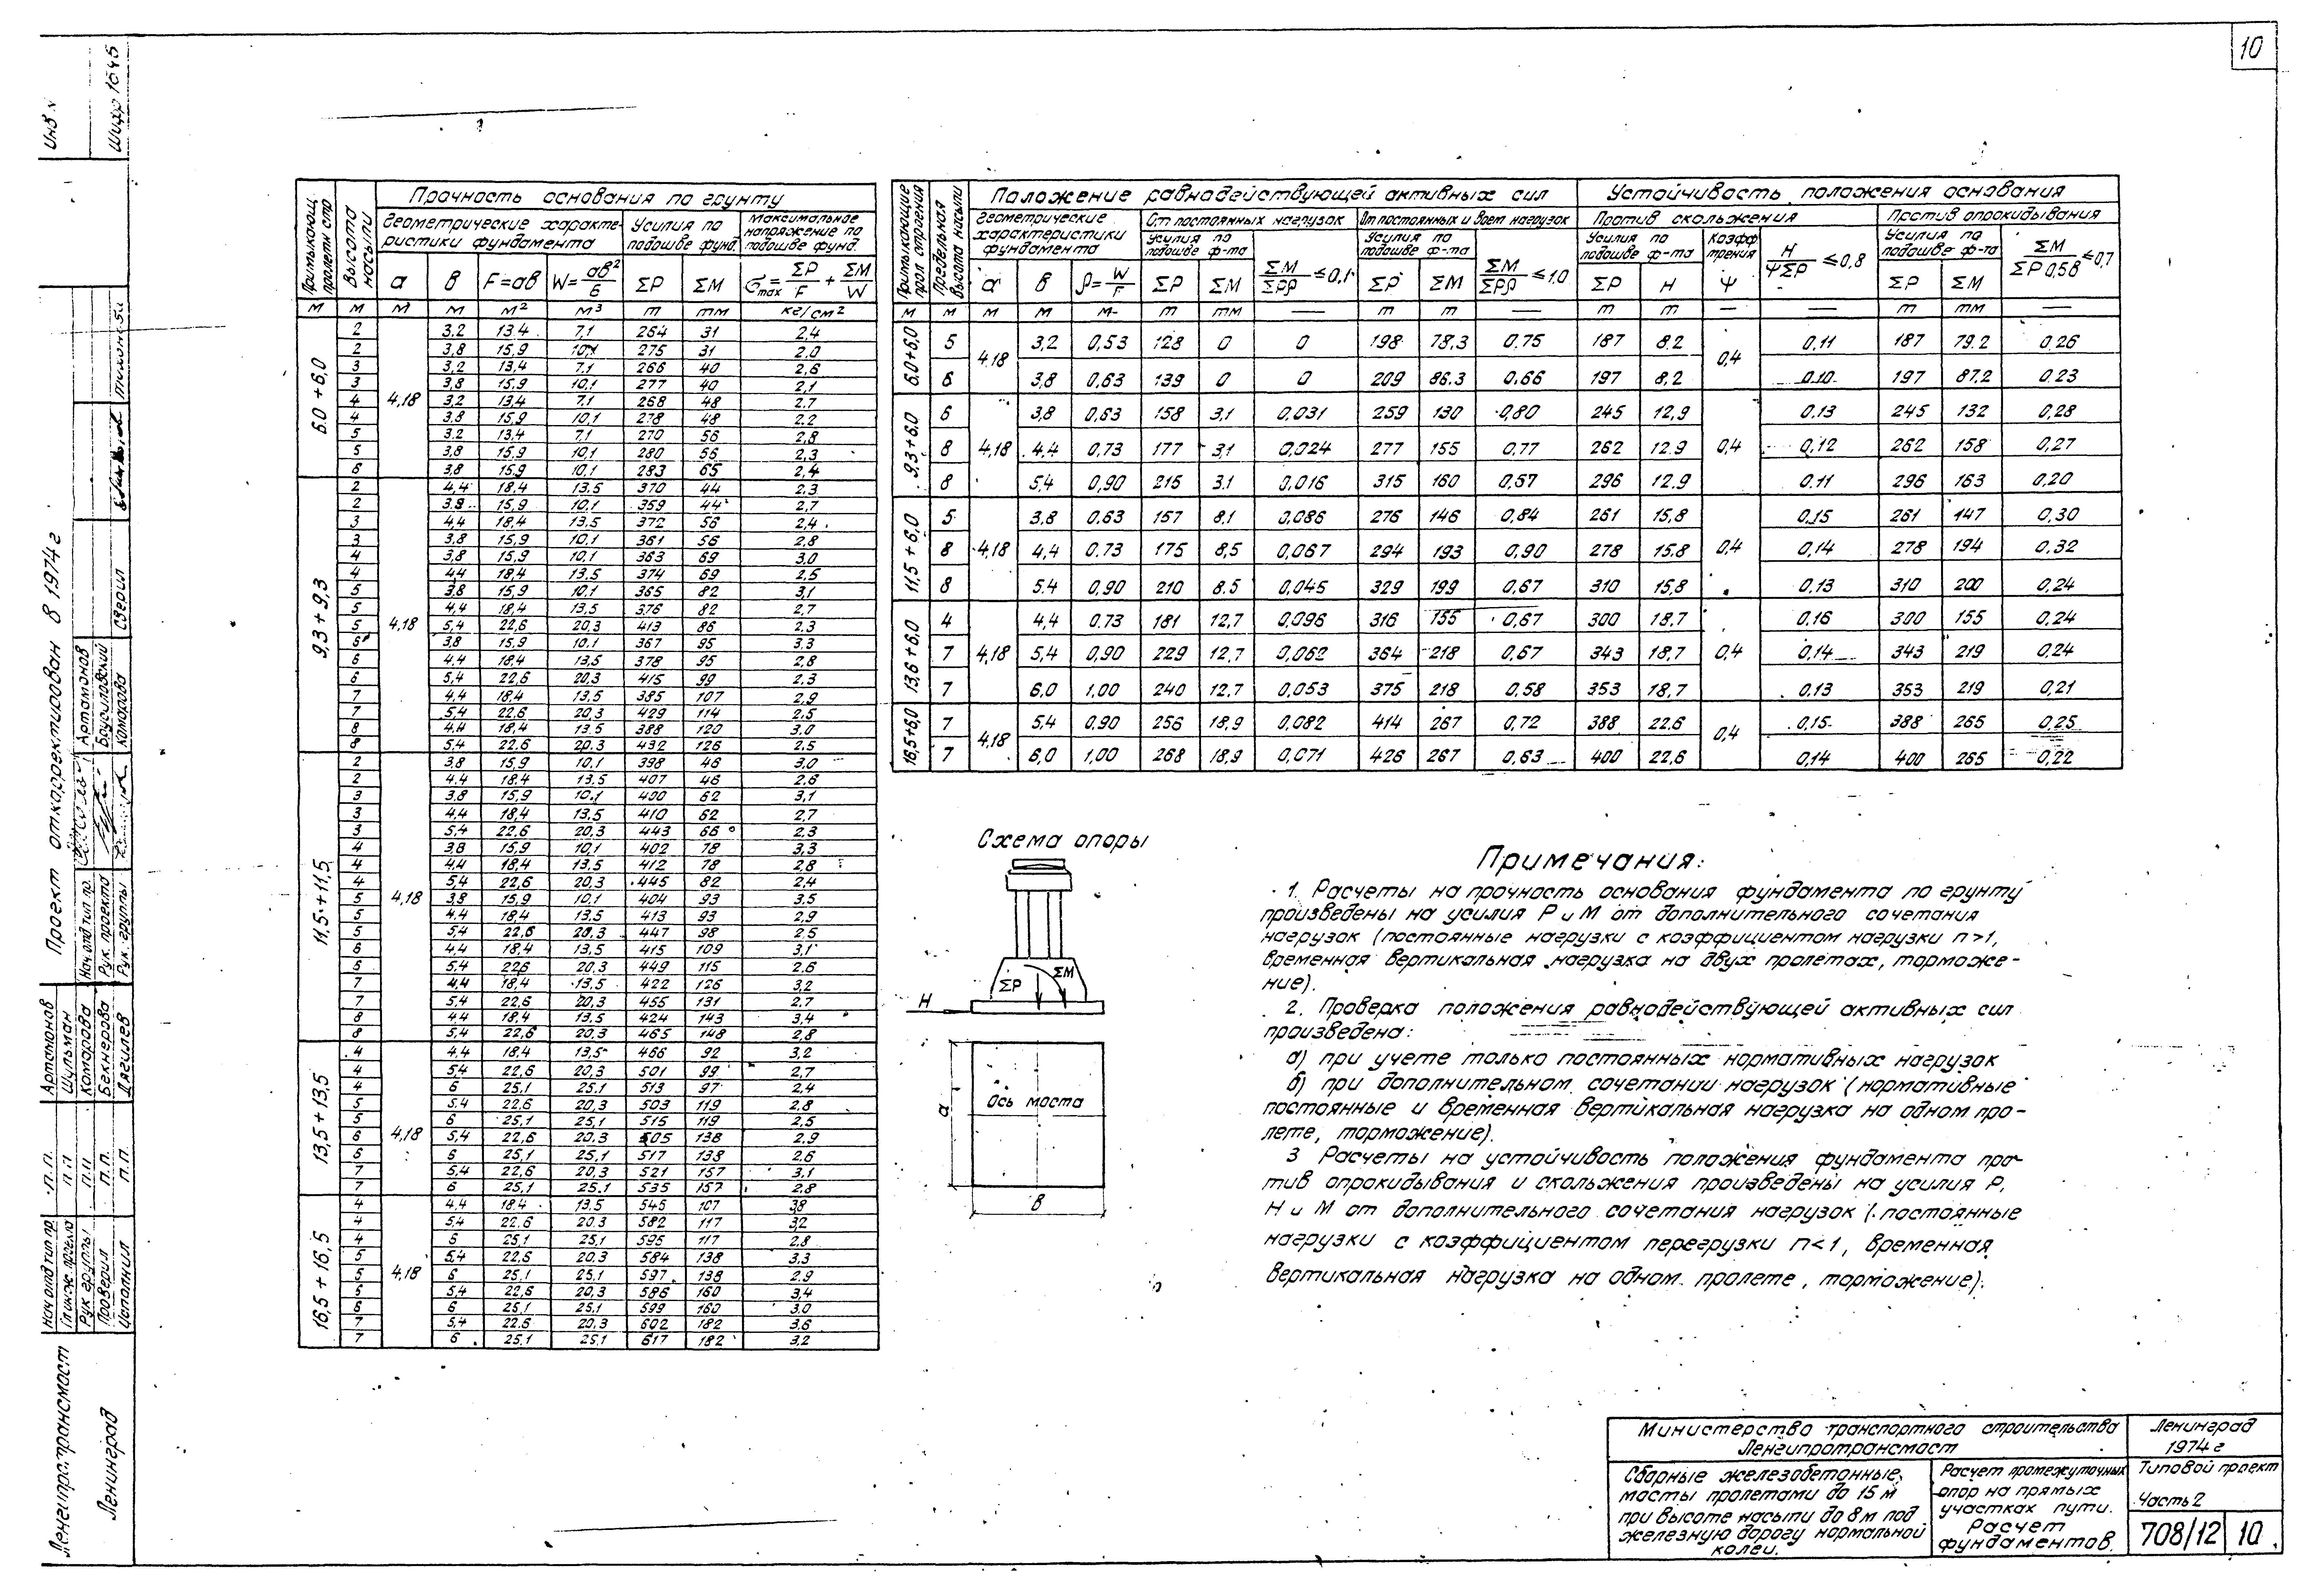 10
Шифр 1645
Инв.
Проект откорректирован в 1974 г
Прочность основания по грунту
Примыкающ. пролетн стр
Высота насыпи
Геометрические характе-
ристики фундамента
Усилия по
подошве фунд.
Максимальное
напряжение по
подошве фунд.
а в F=ав W=ав²/6 ΣP ΣM σmax=ΣP/F+ΣM/W
м м м м м² м³ т тм кг/см²
6.0+6,0
4,18
2 3.2 13.4 7.1 264 31 2,4
2 3,8 15,9 10,1 275 31 2,0
3 3,2 13,4 7,1 266 40 2,6
3 3,8 15,9 10,1 277 40 2,1
4 3.2 13,4 7.1 268 48 2.7
4 3.8 15,9 10,1 278 48 2.2
5 3.2 13,4 7,1 270 56 2,8
5 3,8 15,9 10,1 280 56 2,3
6 3,8 15,9 10,1 283 65 2,4
9,3+9,3
4,18
2 4,4 18,4 13.5 370 44 2,3
2 3.8 15,9 10,1 359 44 2,7
3 4,4 18,4 13,5 372 56 2,4
3 3,8 15,9 10,1 361 56 2,8
4 3,8 15,9 10,1 363 69 3,0
4 4,4 18,4 13,5 374 69 2,5
5 3,8 15,9 10,1 365 82 3,1
5 4,4 18,4 13,5 376 82 2,7
5 5,4 22,6 20,3 413 86 2,3
6 3,8 15,9 10,1 367 95 3,3
6 4,4 18,4 13,5 378 95 2,8
6 5,4 22,6 20,3 415 99 2,3
7 4,4 18,4 13,5 385 107 2,9
7 5,4 22,6 20,3 429 114 2,5
8 4,4 18,4 13,5 388 120 3,0
8 5,4 22,6 20.3 432 126 2,5
11,5+11,5
4,18
2 3,8 15,9 10,1 398 46 3,0
2 4,4 18,4 13,5 407 46 2,6
3 3,8 15,9 10,1 400 62 3,1
3 4,4 18,4 13,5 410 62 2,7
3 5,4 22,6 20,3 443 66 2,3
4 3,8 15,9 10,1 402 78 3,3
4 4,4 18,4 13,5 412 78 2,8
4 5,4 22,6 20,3 445 82 2,4
5 3,8 15,9 10,1 404 93 3,5
5 4,4 18,4 13,5 413 93 2,9
5 5,4 22,6 20,3 447 98 2,5
6 4,4 18,4 13,5 415 109 3,1
5 5,4 22,6 20,3 449 115 2,6
7 4,4 18,4 13,5 422 126 3,2
7 5,4 22,6 20,3 455 131 2,7
8 4,4 18,4 13,5 424 143 3,4
8 5,4 22,6 20,3 465 148 2,8
13,5+13,5
4,18
4 4,4 18,4 13,5 466 92 3,2
4 5,4 22,6 20,3 501 99 2,7
4 6 25,1 25,1 513 97 2,4
5 5,4 22,6 20,3 503 119 2,8
5 6 25,1 25,1 515 119 2,5
6 5,4 22,6 20,3 505 138 2,9
6 6 25,1 25,1 517 138 2,6
7 5,4 22,6 20,3 521 157 3,1
7 6 25,1 25,1 535 157 2,8
16,5+16,5
4,18
4 4,4 18,4 13,5 545 107 3,8
4 5,4 22,6 20,3 582 117 3,2
4 6 25,1 25,1 595 117 2,8
5 5,4 22,6 20,3 584 138 3,3
5 6 25,1 25,1 597 138 2,9
6 5,4 22,6 20,3 586 160 3,4
6 6 25,1 25,1 599 160 3,0
7 5,4 22.6 20,3 602 182 3,6
7 6 25,1 25,1 617 182 3,2
Положение равнодействующей активных сил
Устойчивость положения основания
Примыкающие прол. строения
Предельная высота насыпи
Геометрические
характеристики
фундамента
От постоянных нагрузок
От постоянных и врем нагрузок
Против скольжения
Против опрокидывания
Усилия по
подошве ф-та
Усилия по
подошве ф-та
Усилия по
подошве ф-та
Коэфф
трения
Усилия по
подошве ф-та
а в ρ=W/F ΣP ΣM ΣM/ΣPρ≤0,1 ΣP ΣM ΣM/ΣPρ≤1.0 ΣP H Ψ H/ΨΣP≤0,8 ΣP ΣM ΣM/ΣP 0,5в≤0,7
м м м м м т тм — т т — т т — — т тм —
6,0+6,0
4,18 0,4
5 3,2 0,53 128 0 0 198 78,3 0.75 187 8.2 0.11 187 79.2 0.26
6 3,8 0,63 139 0 0 209 86.3 0.66 197 8,2 0.10 197 87.2 0.23
9,3+6,0
4,18 0,4
6 3,8 0,63 158 3,1 0,031 259 130 0,80 245 12,9 0.13 245 132 0,28
8 4,4 0,73 177 3,1 0,024 277 155 0,77 262 12.9 0,12 262 158 0,27
8 5,4 0,90 215 3.1 0,016 315 160 0,57 296 12.9 0.11 296 163 0,20
11,5+6,0
4,18 0,4
5 3,8 0,63 157 8,1 0,086 276 146 0,84 261 15,8 0,15 261 147 0,30
8 4,4 0.73 175 8,5 0,067 294 193 0,90 278 15,8 0,14 278 194 0,32
8 5.4 0,90 210 8.5 0,045 329 199 0,67 310 15,8 0,13 310 200 0,24
13,6+6,0
4,18 0,4
4 4,4 0.73 181 12,7 0,096 316 155 0,67 300 18,7 0.16 300 155 0,24
7 5,4 0,90 229 12,7 0,062 364 218 0,67 343 18,7 0,14 343 219 0,24
7 6.0 1,00 240 12,7 0,053 375 218 0,58 353 18,7 0,13 353 219 0,21
16,5+6,0
4,18 0,4
7 5,4 0,90 256 18,9 0,082 414 267 0,72 388 22,6 0,15 388 265 0,25
7 6,0 1,00 268 18,9 0,071 426 267 0,63 400 22,6 0,14 400 265 0,22
Схема опоры
ΣP ΣM
H
Ось моста
а
в
Примечания:
1. Расчеты на прочность основания фундамента по грунту
произведены на усилия Р и М от дополнительного сочетания
нагрузок (постоянные нагрузки с коэффициентом нагрузки n>1,
временная вертикальная нагрузка на двух пролетах, торможе-
ние).
2. Проверка положения равнодействующей активных сил
произведена:
а) при учете только постоянных нормативных нагрузок
б) при дополнительном сочетании нагрузок (нормативные
постоянные и временная вертикальная нагрузка на одном про-
лете, торможение).
3 Расчеты на устойчивость положения фундамента про-
тив опрокидывания и скольжения произведены на усилия Р,
Н и М от дополнительного сочетания нагрузок (постоянные
нагрузки с коэффициентом перегрузки n<1, временная
вертикальная нагрузка на одном пролете, торможение).
Министерство транспортного строительства
Ленгипротрансмост
Ленинград
1974 г
Сборные железобетонные
мосты пролетами до 15 м
при высоте насыпи до 8 м под
железную дорогу нормальной
колеи.
Расчет промежуточных
опор на прямых
участках пути.
Расчет
фундаментов.
Типовой проект
Часть 2
708/12 10
Нач отд тип пр. Артамонов
Рук. проекта Брусиловский
Рук. группы Комарова
Сверил
Нач отд тип пр п.п. Артамонов
п.п Шульман
Рук группы п.п Комарова
Проверил п.п.
Исполнил п.п. Дягилев
Ленгипротрансмост
Ленинград